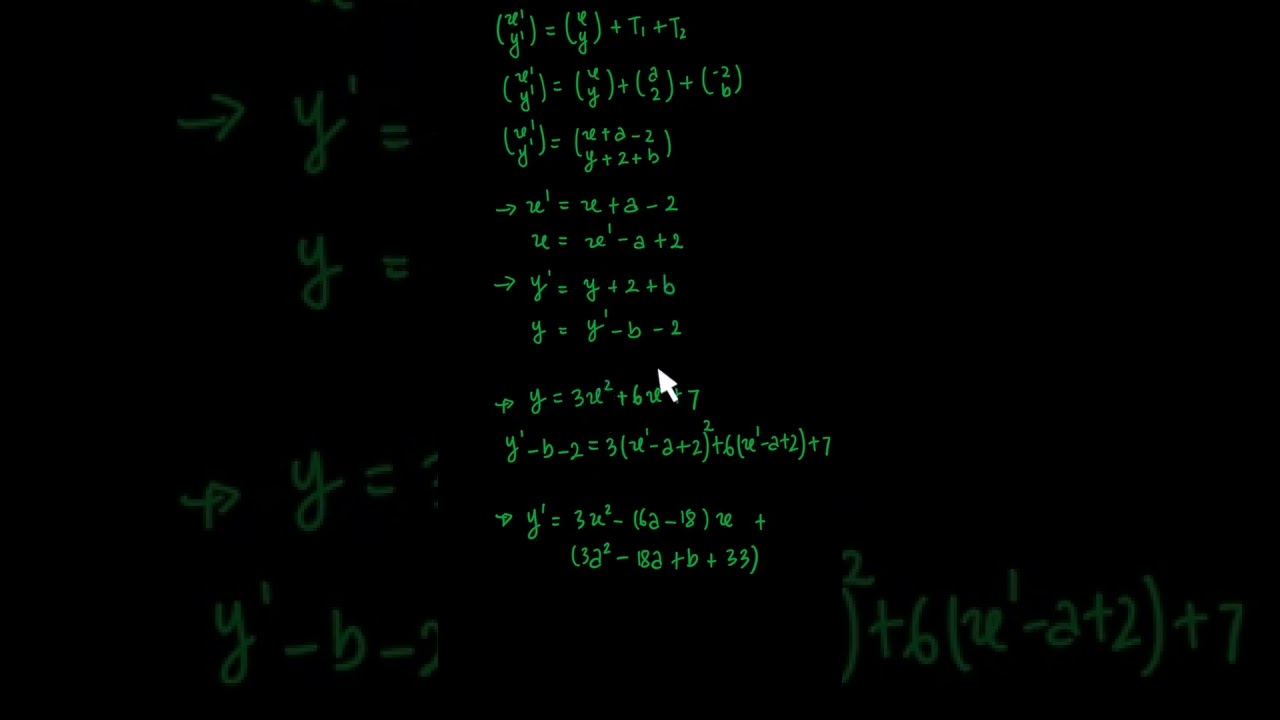 (x' y') = (x y) + T₁ + T₂
(x' y') = (x y) + (a 2) + (-2 b)
(x' y') = (x+a-2 y+2+b)
→ x' = x + a - 2
x = x' - a + 2
→ y' = y + 2 + b
y = y' - b - 2
→ y = 3x² + 6x + 7
y' - b - 2 = 3(x' - a + 2)² + 6(x' - a + 2) + 7
→ y' = 3x² - (6a - 18)x +
(3a² - 18a + b + 33)
→ y' =
y =
→ y =
y' - b -
)² + 6(x' - a + 2) + 7